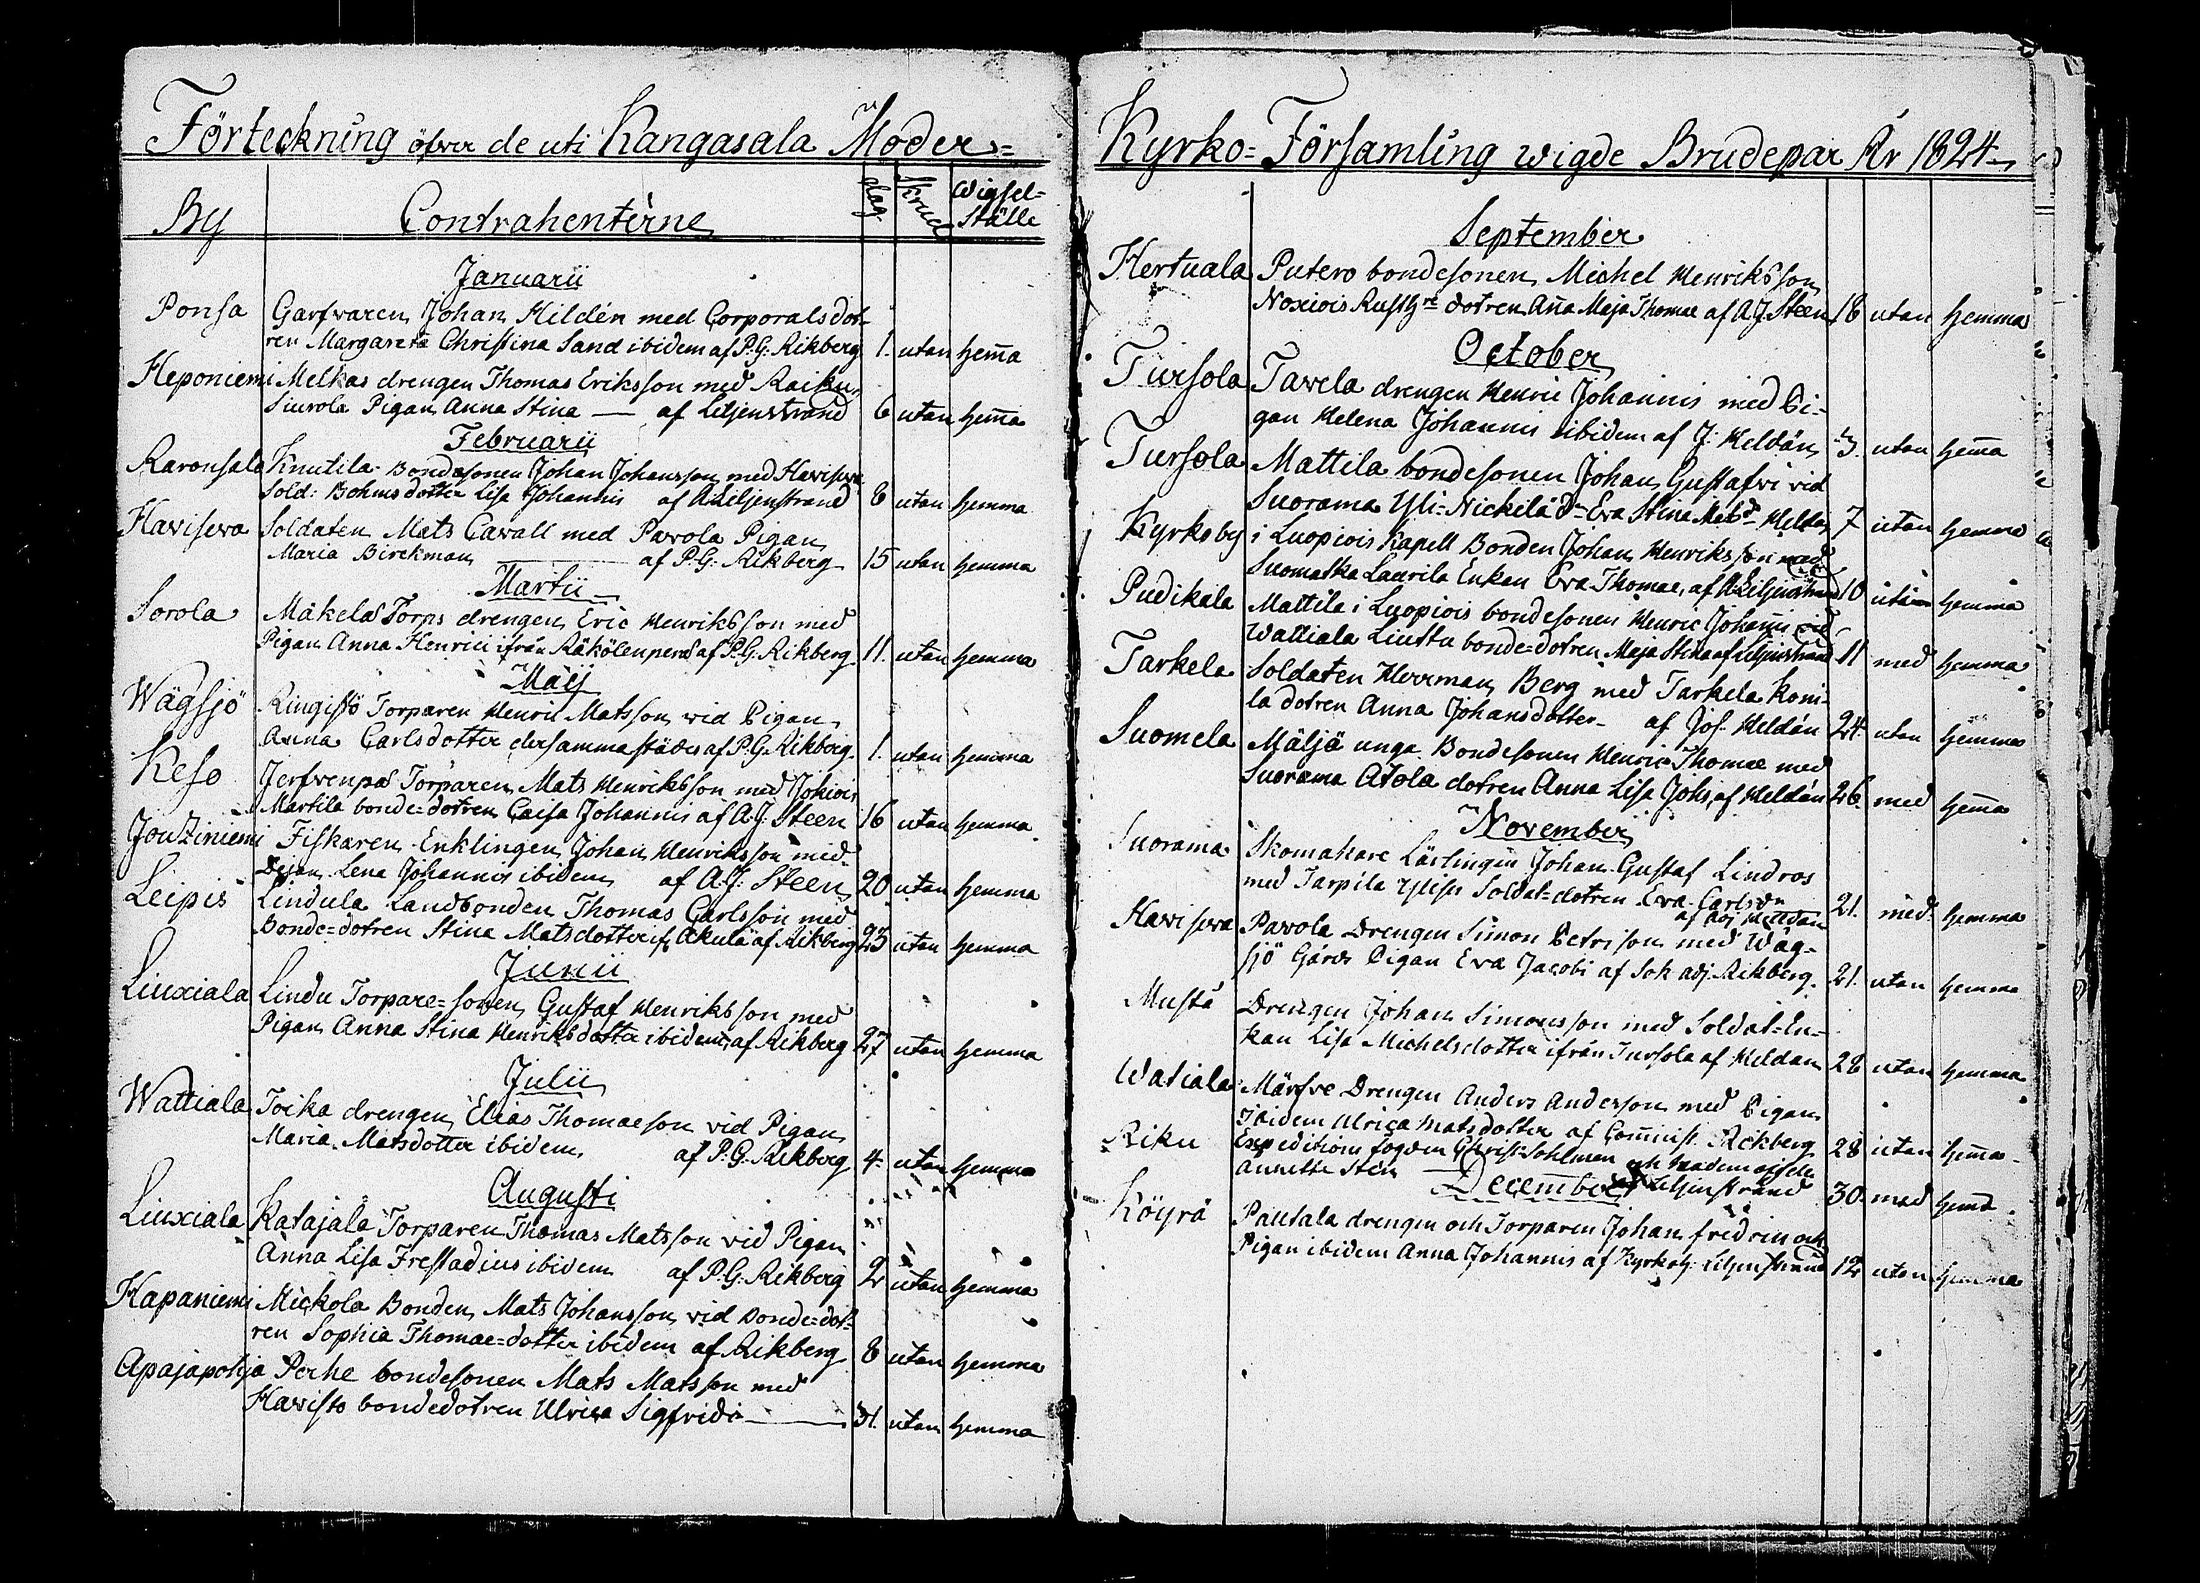 Förteckning öfver de uti Kangasala Moder=
By Contrahenterne dag Skrud Wigsel-
Ställe
Januarii
Ponsa Garfvaren Johan Hildén med Corporals dot-
ren Margareta Christina Sand ibidem af P.G. Rikberg 1. utan hem̄a
Heponiemi Melkas drengen Thomas Eriksson med Raiku
Siurola Pigan Anna Stina — af Liljenstrand 6 utan hem̄a
Februarii
Raronsalo Knutila Bondesonen Johan Johansson med Havisewa
Sold: Bohms dotter Lisa Johannis af Liljenstrand 8 utan hemma
Havisewa Soldaten Mats Cavall med Pavola Pigan
Maria Birckman — af P.G. Rikberg 15 utan hemma
Martii
Sorola Mäkelä Torps drengen Eric Henriksson med
Pigan Anna Henrici ifrån Räkölenperä af P.G. Rikberg 11. utan hemma
Maij
Wägsjö Ringistö Torparen Henric Matsson vid Pigan
Anna Carlsdotter dersammastädes af P.G. Rikberg. 1. utan hemma
Keso Jerfvenpä Torparen Mats Henriksson med Johiois
Martila bonde-dotren Caisa Johannis af A.J. Steen 16 utan hemma
Jouziniemi Fiskaren Enklingen Johan Henriksson med
Pigan Lena Johannis ibidem af A.J. Steen 20 utan hemma
Leipis Lindula Landbonden Thomas Carlsson med
Bonde=dotren Stina Matsdotter if. Akulä af Rikberg 23 utan hemma
Junii
Liuxiala Lindu Torpare=sonen Gustaf Henriksson med
Pigan Anna Stina Henriksdotter ibidem af Rikberg 27 utan hemma
Julii
Wattiala Toika drengen Elias Thomaeson vid Pigan
Maria Matsdotter ibidem af P.G. Rikberg 4. utan hemma
Augusti
Liuxiala Katajala Torparen Thomas Matsson vid Pigan
Anna Lisa Frestadius ibidem af P.G. Rikberg 2 utan hemma
Hapaniemi Mickola Bonden Mats Johansson vid Bonde=dot-
ren Sophia Thomae=dotter ibidem af Rikberg 8 utan hemma
Apajapohja Perhe bondesonen Mats Matsson med
Havisto bondedotren Ulrica Sigfridi — 31. utan hemma
Kyrko=Församling wigde Brudepar År 1824
September
Hertuala Putero bondesonen Michel Henriksson
Dotren Anna Maja Thomae af A.J. Steen 18 utan hemma
October
Tursola Tavela drengen Henric Johannis med Pi-
gan Helena Johannis ibidem af J. Heldán 3. utan hem̄a
Tursola Mattila bondesonen Johan Gustafvi vid
Suorama Yli=Nickilä Eva Stina 7 utan hemma
Kyrkoby i Luopiois Kapell Bonden Johan Henriksson med
Suomatka Laurila Enkan Eva Thomae, af Liljenstrand 10 utan hemma
Pudikala Mattila i Luopiois bondesonen Henric Johan̄i vid
Wattiala Liuttu bonde=dotren Maja Stina af Liljenstrand 11 med hemma
Tarkela Soldaten Herrman Berg med Tarkela Koni-
la dotren Anna Johansdotter af Jos. Heldán 24. utan hemma
Suomela Mäljä unga Bondesonen Henric Thomae med
Suorama Atola dotren Anna Lisa Johs. af Heldán 26. med hem̄a
November
Suorama Skomakare Lärlingen Johan Gustaf Lindros
med Tarpila Soldat=dotren Eva Carlsdr
af adj. Heldan 21. med hemma
Havisewa Pavola Drengen Simon Petrisson med Wäg-
sjö Gårds Pigan Eva Jacobi af Sok. adj. Rikberg. 21. utan hemma
Musta Drengen Johan Simonsson med Soldat=En-
kan Lisa Michelsdotter ifrån Tursola af Heldan 28 utan hemma
Watiala Märfve Drengen Anders Andersson med Pigan
Ibidem Ulrica Matsdotter af Com̄inist. Rikberg 28 utan hem̄a
Riku Expeditions fogden Christ. Sohlman och Mademoiselle
Annette Stén Liljenstrand 30. med
December
Köyrä Pentala drengen och Torparen Johan Fredrici och
Pigan ibidem Anna Johannis af Kyrkoh. Liljenstrand 12 utan hemma